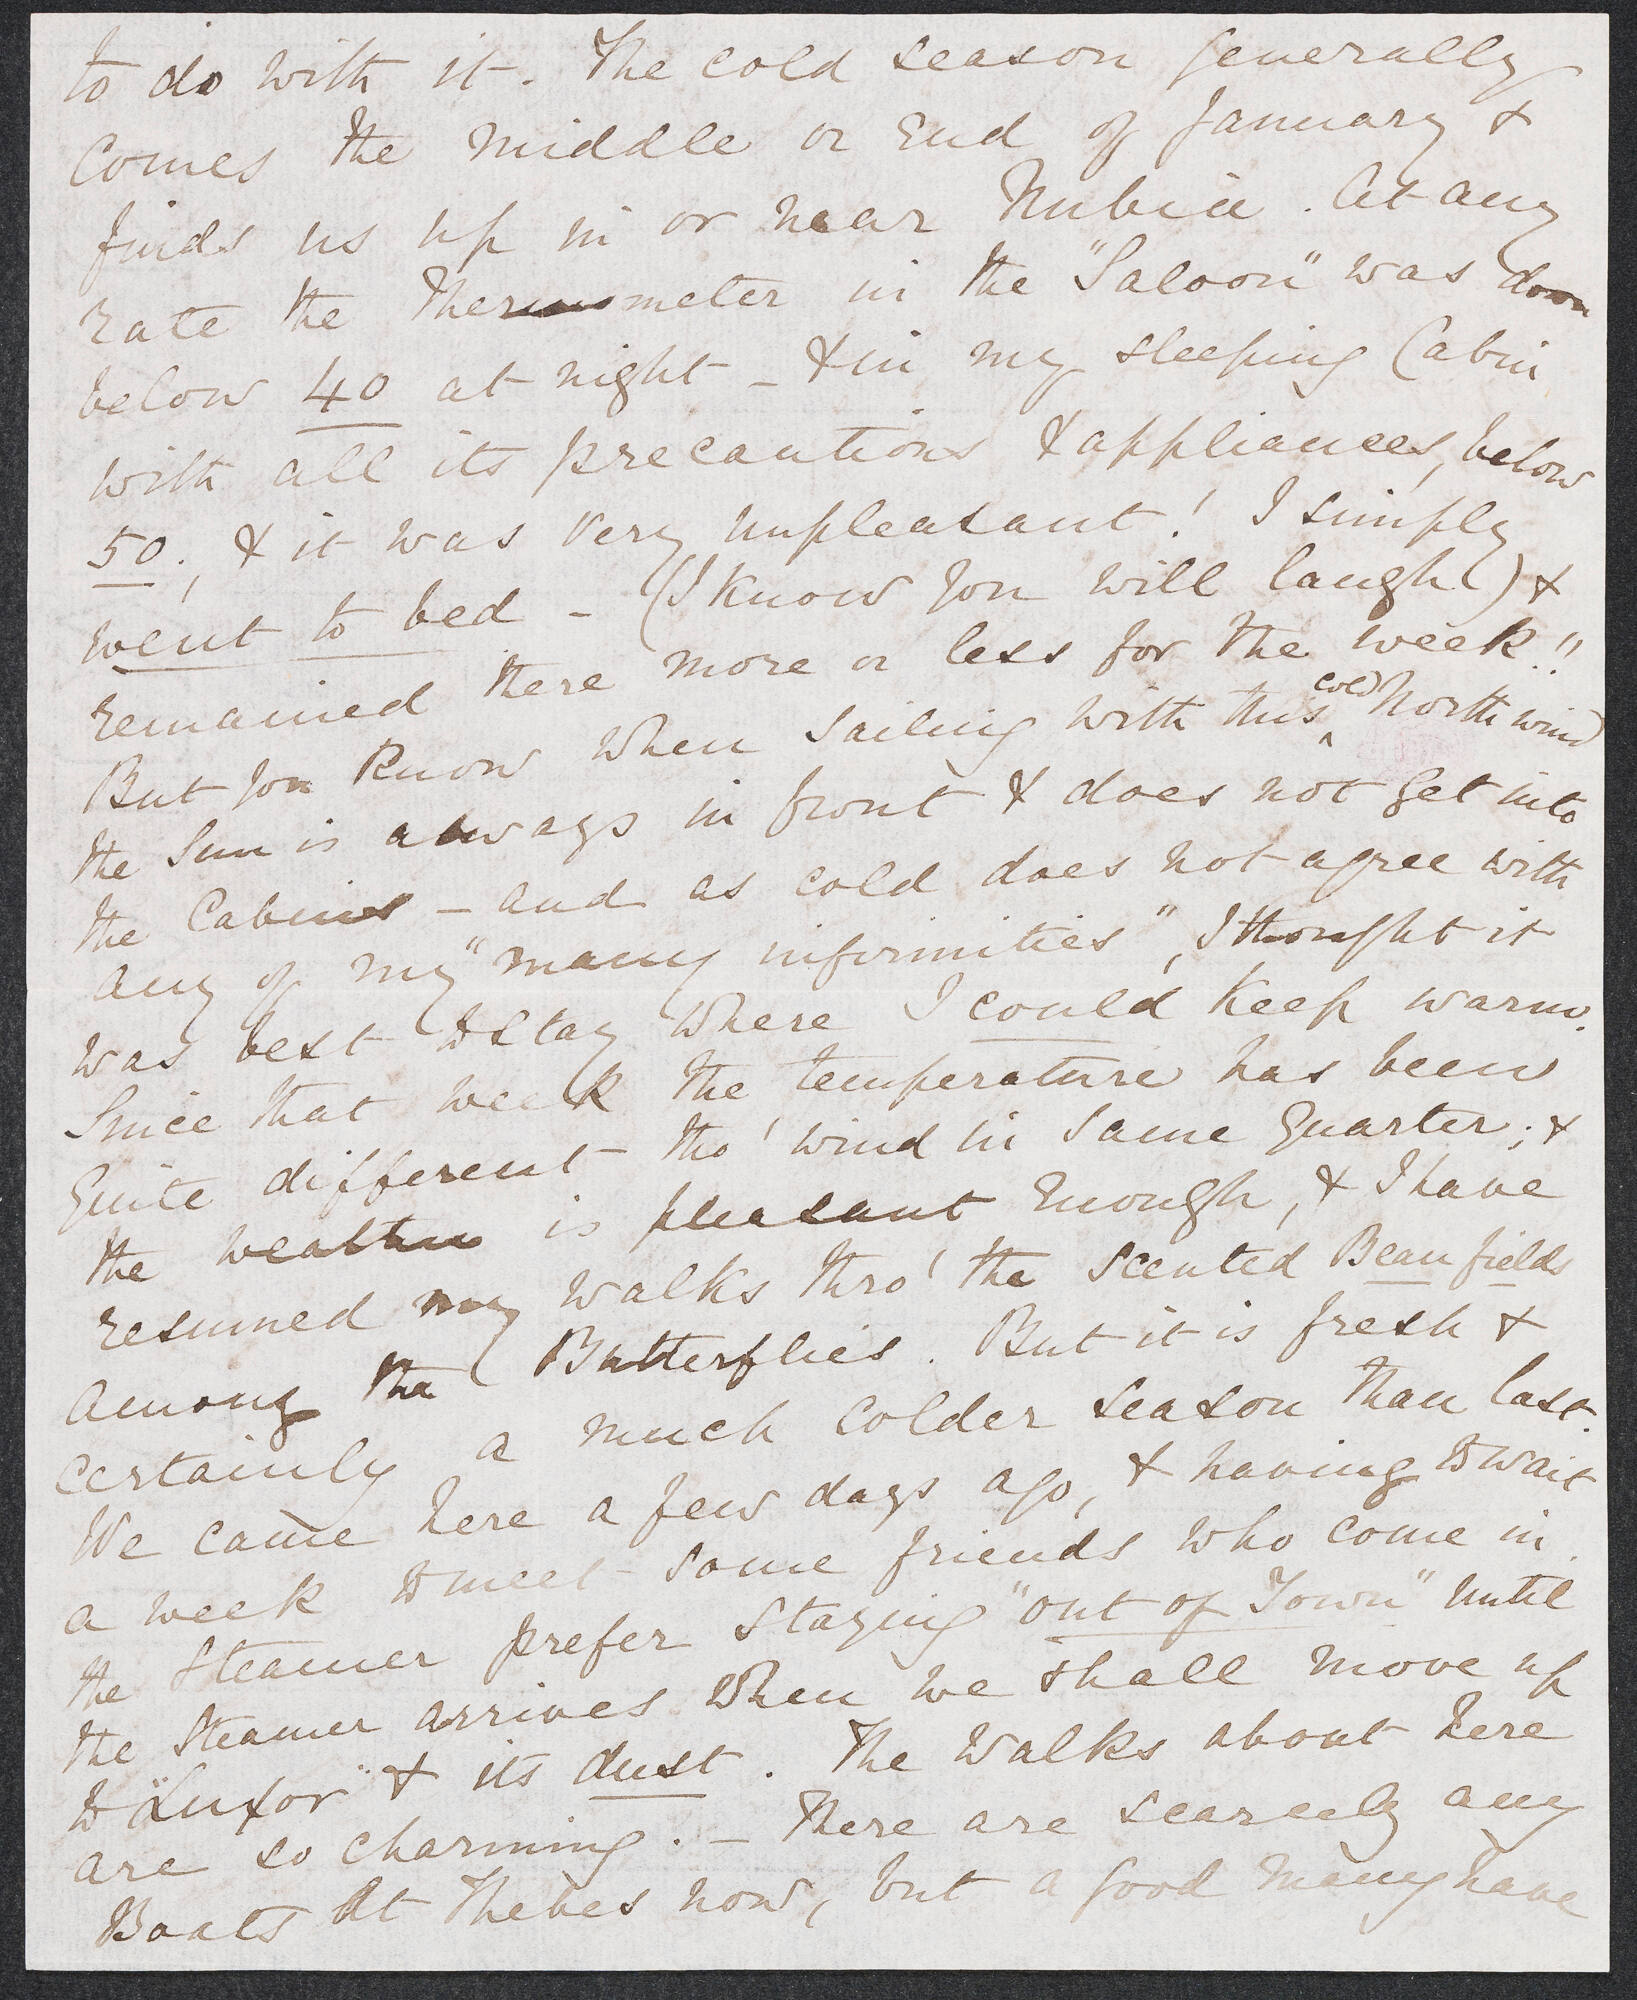 to do with it. The cold season generally
comes the middle or end of January &
finds us up in or near Nubia. At any
rate the thermometer in the "Saloon" was down
below 40 at night - & in my sleeping Cabin
with all its precautions & appliances, below
50., & it was very unpleasant! I simply
went to bed - (I know you will laugh!) &
remained there more or less for the week!!
But you know when sailing with this cold North wind
the Sun is always in front & does not get into
the Cabins - and as cold does not agree with
any of my "many infirmities", I thought it
was best to stay where I could keep warm.
Since that week the temperature has been
quite different tho' wind in same quarter; &
the weather is pleasant enough, & I have
resumed my walks thro' the scented Bean fields
among the Butterflies. But it is fresh &
certainly a much colder season than last.
We came here a few days ago, & having to wait
a week to meet some friends who come in
the Steamer prefer staying "out of Town" until
the Steamer arrives when we shall move up
to "Luxor" & its dust. The walks about here
are so charming. - There are scarcely any
Boats at Thebes now, but a good many have